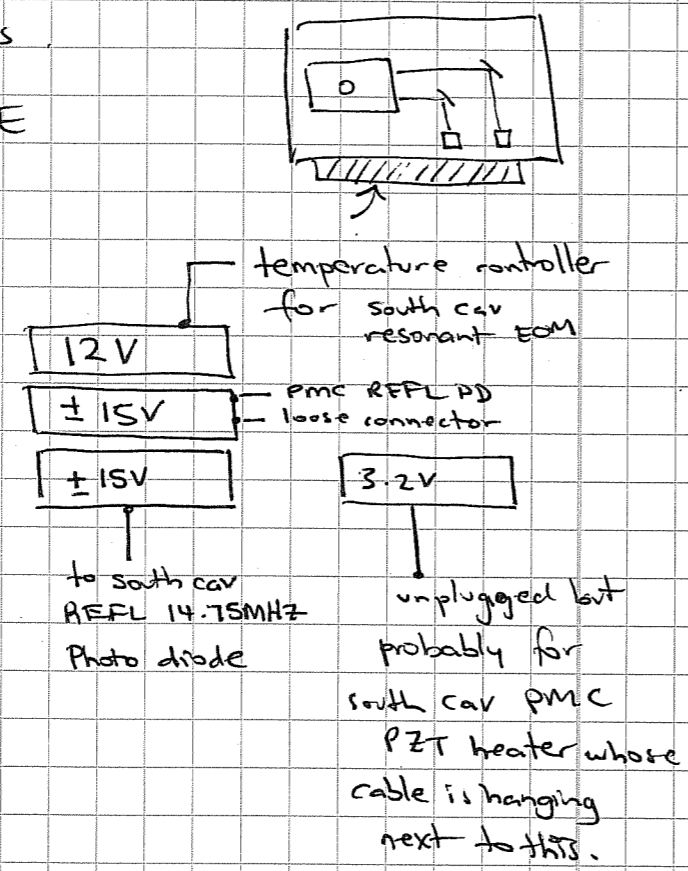 s.
E
temperature controller
for south cav
resonant EOM
12V
± 15V
PMC REFL PD
loose connector
± 15V
3.2V
to south cav
REFL 14.75MHz
Photo diode
unplugged but
probably for
south cav PMC
PZT heater whose
cable is hanging
next to this.